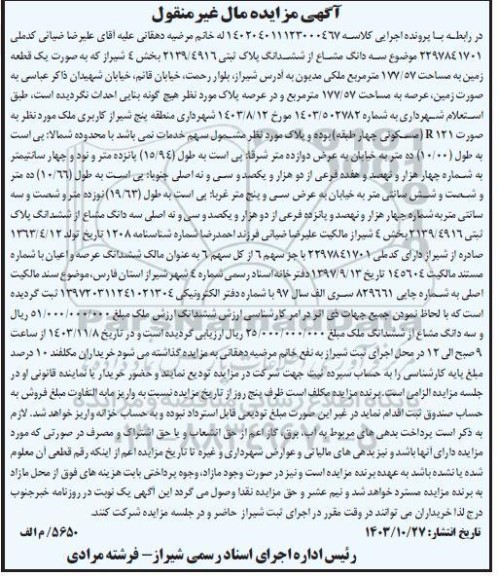 آگهی مزایده مال غیر منقول
در رابطه با پرونده اجرایی کلاسه ۱۴۰۲۰۴۰۱۱۱۲۳۰۰۰۴۶۷ له خانم مرضیه دهقانی علیه آقای علیرضا ضیائی کدملی
۲۲۹۷۸۴۱۷۰۱ موضوع سه دانگ مشاع از ششدانگ پلاک ثبتی ۲۱۳۹/۴۹۱۶ بخش ۴ شیراز که به صورت یک قطعه
زمین به مساحت ۱۷۷/۵۷ مترمربع ملکی مدیون به آدرس شیراز، بلوار رحمت، خیابان قائم، خیابان شهیدان ذاکر عباسی به
صورت زمین، عرصه به مساحت ۱۷۷/۵۷ مترمربع و در عرصه پلاک مورد نظر هیچ گونه بنایی احداث نگردیده است، طبق
استعلام شهرداری به شماره ۱۴۰۳/۵۰۲۷۸۲ مورخ ۱۴۰۳/۸/۱۲ شهرداری منطقه پنج شیراز کاربری ملک مورد نظر به
صورت R۱۲۱ (مسکونی چهار طبقه) بوده و پلاک مورد نظر مشمول سهم خدمات نمی باشد با محدوده شمالا: پی است
به طول (۱۰/۰۰) ده متر به خیابان به عرض دوازده متر شرقا: پی است به طول (۱۵/۹۴) پانزده متر و نود و چهار سانتیمتر
به شماره چهار هزار و نهصد و هفده فرعی از دو هزار و یکصد و سی و نه اصلی جنوبا: پی است به طول (۱۰/۶۶) ده متر
و شصت و شش سانتی متر به خیابان به عرض سی و پنج متر غربا: پی است به طول (۱۹/۶۳) نوزده متر و شصت و سه
سانتی متر به شماره چهار هزار و نهصد و پانزده فرعی از دو هزار و یکصد و سی و نه اصلی سه دانگ مشاع از ششدانگ پلاک
ثبتی ۲۱۳۹/۴۹۱۶ بخش ۴ شیراز مالکیت علیرضا ضیائی فرزند احمدرضا شماره شناسنامه ۱۲۰۸ تاریخ تولد ۱۳۶۳/۴/۱۲
صادره از شیراز دارای کدملی ۲۲۹۷۸۴۱۷۰۱ با جز سهم ۶ از کل سهم ۶ به عنوان مالک ششدانگ عرصه و اعیان با شماره
مستند مالکیت ۱۴۵۶۰۴ تاریخ ۱۳۹۷/۹/۱۳ دفترخانه اسناد رسمی شماره ۴ شهر شیراز استان فارس، موضوع سند مالکیت
اصلی به شماره چاپی ۸۲۹۶۶۱ سری الف سال ۹۷ با شماره دفتر الکترونیکی ۱۳۹۷۲۰۳۱۱۲۴۱۰۲۱۳۰۴ ثبت گردیده
است که با لحاظ نمودن جمیع جهات ذی اثر در امر کارشناسی ارزش ششدانگ ارزش ملک مبلغ ۵۱/۰۰۰/۰۰۰/۰۰۰ ریال
و سه دانگ مشاع از ششدانگ ملک مبلغ ۲۵/۰۰۰/۰۰۰/۰۰۰ ریال ارزیابی گردیده است و در تاریخ ۱۴۰۳/۱۱/۸ از ساعت
۹ صبح الی ۱۲ در محل اجرای ثبت شیراز به نفع خانم مرضیه دهقانی به مزایده گذاشته می شود خریداران مکلفند ۱۰ درصد
مبلغ پایه کارشناسی را به حساب سپرده ثبت جهت شرکت در مزایده تودیع نمایند و حضور خریدار یا نماینده قانونی او در
جلسه مزایده الزامی است. برنده مزایده مکلف است ظرف پنج روز از تاریخ مزایده نسبت به واریز مابه التفاوت مبلغ فروش به
حساب صندوق ثبت اقدام نماید در غیر این صورت مبلغ تودیعی قابل استرداد نبوده و به حساب خزانه واریز خواهد شد. لازم
به ذکر است پرداخت بدهی های مربوط به آب، برق، گاز اعم از حق انشعاب و یا حق اشتراک و مصرف در صورتی که مورد
مزایده دارای آنها باشد و نیز بدهی های مالیاتی و عوارض شهرداری و غیره تا تاریخ مزایده اعم از اینکه رقم قطعی آن معلوم
شده یا نشده باشد به عهده برنده مزایده است و نیز در صورت وجود مازاد، وجوه پرداختی بابت هزینه های فوق از محل مازاد
به برنده مزایده مسترد خواهد شد و نیم عشر و حق مزایده نقدا وصول می گردد این آگهی یک نوبت در روزنامه خبرجنوب
درج لذا خریداران می توانند در وقت مقرر در اجرای ثبت شیراز حاضر و در جلسه مزایده شرکت کنند.
تاریخ انتشار: ۱۴۰۳/۱۰/۲۷
۵۶۵۰/م الف
رئیس اداره اجرای اسناد رسمی شیراز- فرشته مرادی